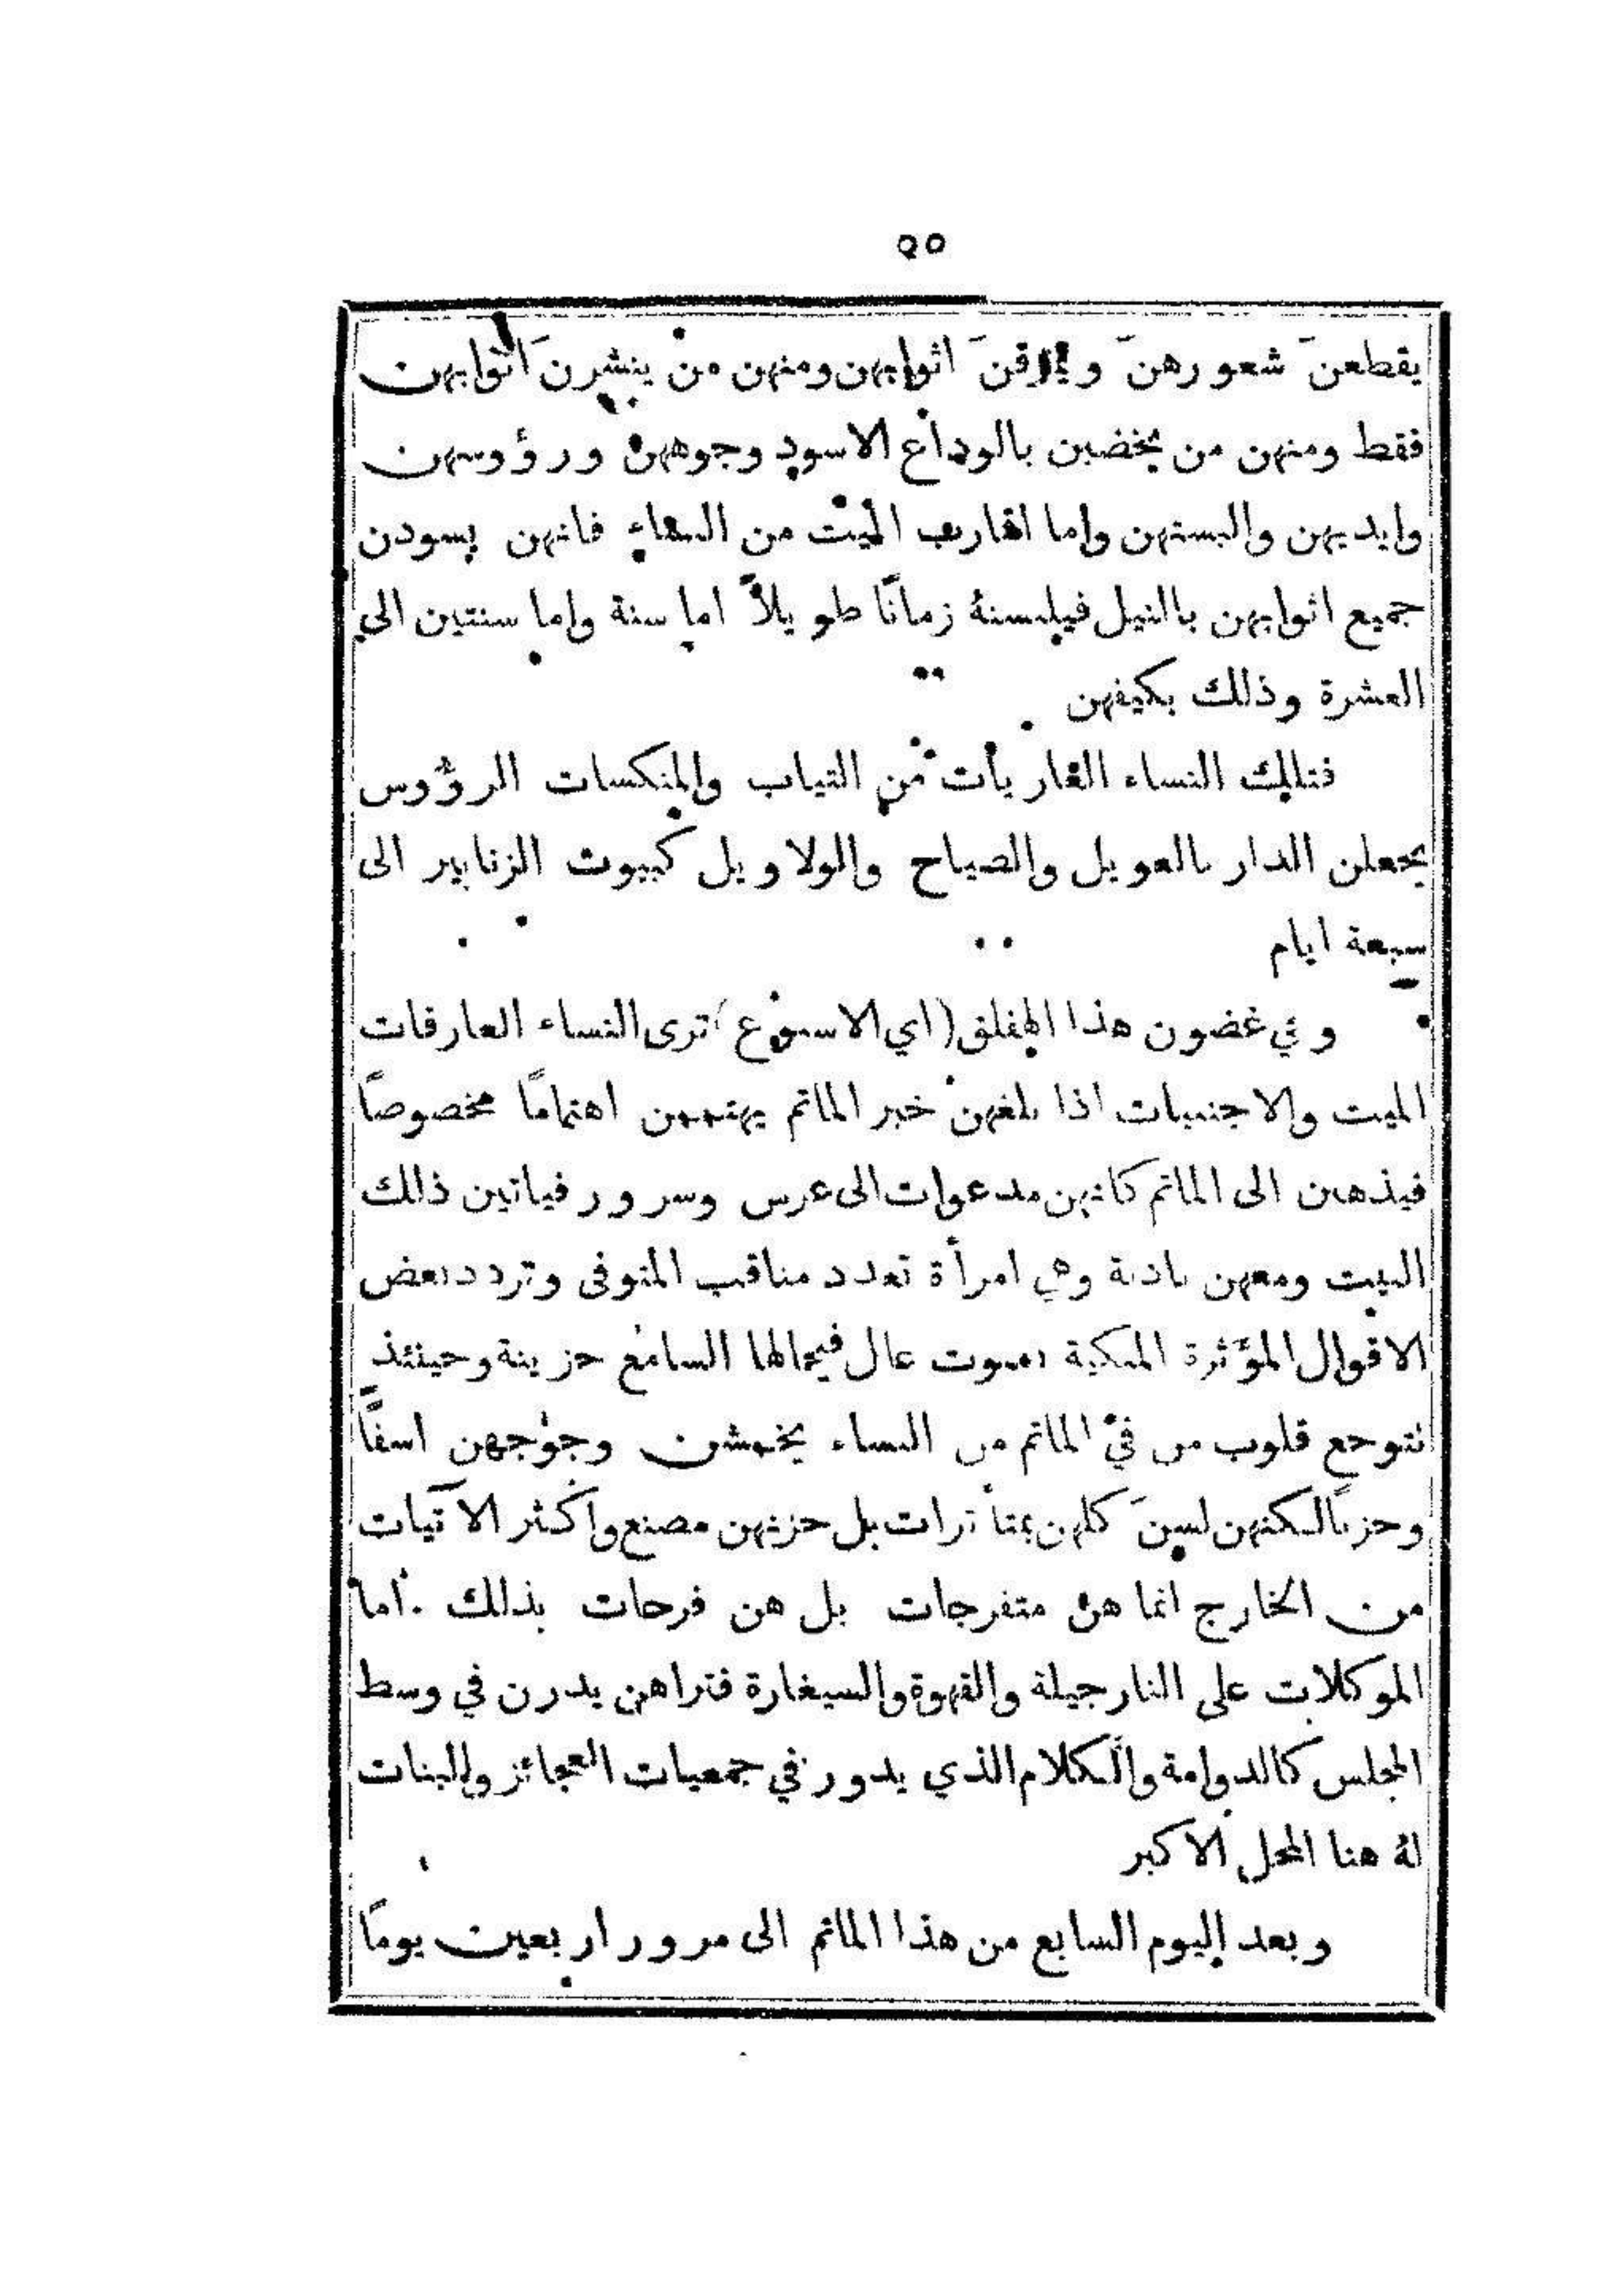 ٥٥
يقطعنَ شعورهنَّ ويمزقنَ اثوابهن ومنهن من ينشرنَ اثوابهن
فقط ومنهن من يخضبن بالوداع الاسود وجوههن ورؤوسهن
وايديهن والبستهن واما اقارب الميت من النساء فانهن يسودن
جميع اثوابهن بالنيل فيلبسنهُ زمانًا طويلاً اما سنة واما سنتين الى
العشرة وذلك بكيفهن
فتلك النساء العاريات من الثياب والمنكسات الرؤوس
يجعلن الدار بالعويل والصياح والولاويل كبيوت الزنابير الى
سبعة ايام
وفي غضون هذا (اي الاسبوع) ترى النساء العارفات
الميت والاجنبيات اذا بلغهن خبر الماتم يهتممن اهتمامًا مخصوصًا
فيذهبن الى الماتم كانهن مدعوات الى عرس وسرور فياتين ذلك
البيت ومعهن نادبة وهي امرأة تعدد مناقب المتوفى وتردد بعض
الاقوال المؤَثرة المبكية بصوت عال فيخالها السامع حزينة وحينئذ
تتوجع قلوب من في الماتم من النساء يخمشن وجوههن اسفًا
وحزنًا لكنهن لسنَ كلهن بمتأثرات بل حزنهن مصنع واكثر الآتيات
من الخارج انما هن متفرجات بل هن فرحات بذلك . اما
الموكلات على النارجيلة والقهوة والسيغارة فتراهن يدرن في وسط
المجلس كالدوامة والكلام الذي يدور في جمعيات العجائز والبنات
لهُ هنا المحل الاكبر
وبعد اليوم السابع من هذا الماتم الى مرور اربعين يومًا